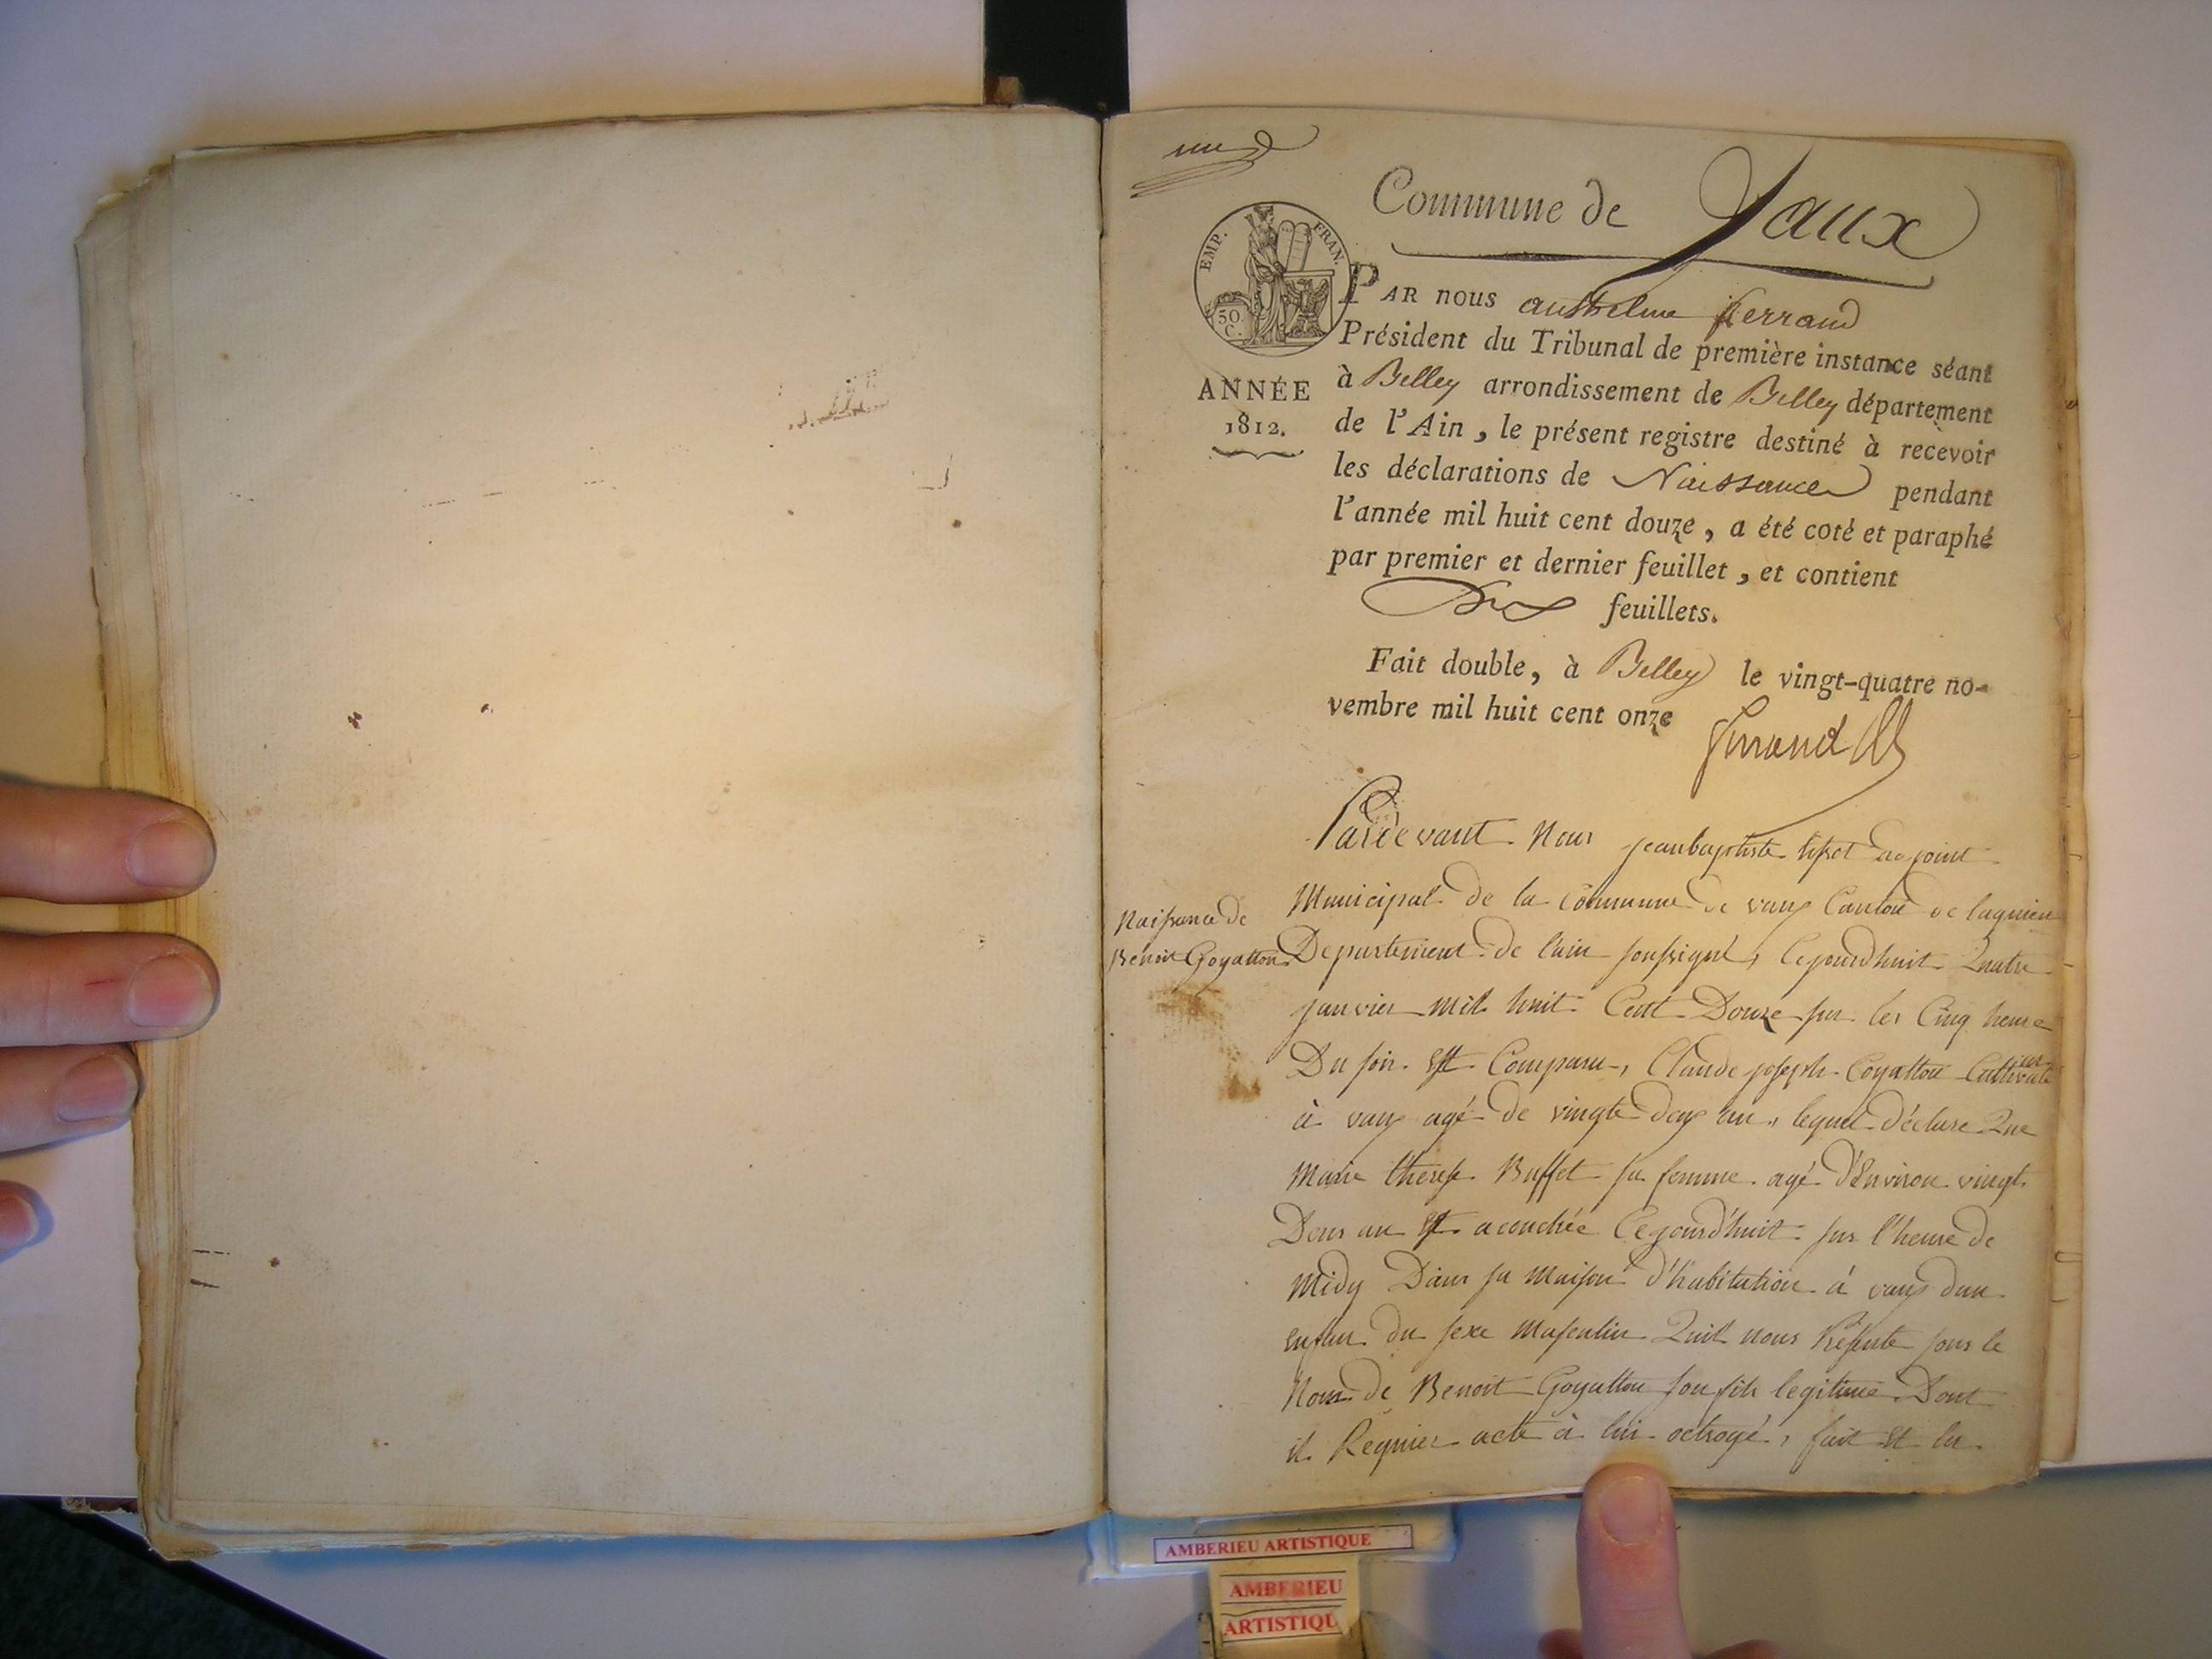 une
Commune de Vaux
EMP. FRAN.
50. C.
ANNÉE
1812.
PAR nous anthelme ferrand
Président du Tribunal de première instance séant
à Belley arrondissement de Belley département
de l'Ain, le présent registre destiné à recevoir
les déclarations de Naissance pendant
l'année mil huit cent douze, a été coté et paraphé
par premier et dernier feuillet, et contient
Dix feuillets.
Fait double, à Belley le vingt-quatre no-
vembre mil huit cent onze
ferrand
Pardevant Nous jeanbaptiste adjoint
Municipal de la Commune de vaux Canton de lagnieu
Naissance de
Benoit Goyatton
Departement de l'ain soussigné, Cejourdhuit Quatre
janvier mil huit Cent Douze sur les Cinq heure
Du soir Est Comparu, Claude joseph Goyatton Cultivateur
à vaux agé de vingte deux an, lequel déclare Que
Marie therese Buffet sa femme agé d'Environ vingt
Deux an Est acouchée Cejourd'huit sur l'heure de
midy Dans sa maison d'habitation à vaux dun
enfan du sexe masculin Quil nous Présente sous le
Nom de Benoit Goyatton son fils legitime Dont
il Requier acte à lui octroyé, fait Et lu
AMBERIEU ARTISTIQUE
AMBERIEU
ARTISTIQU